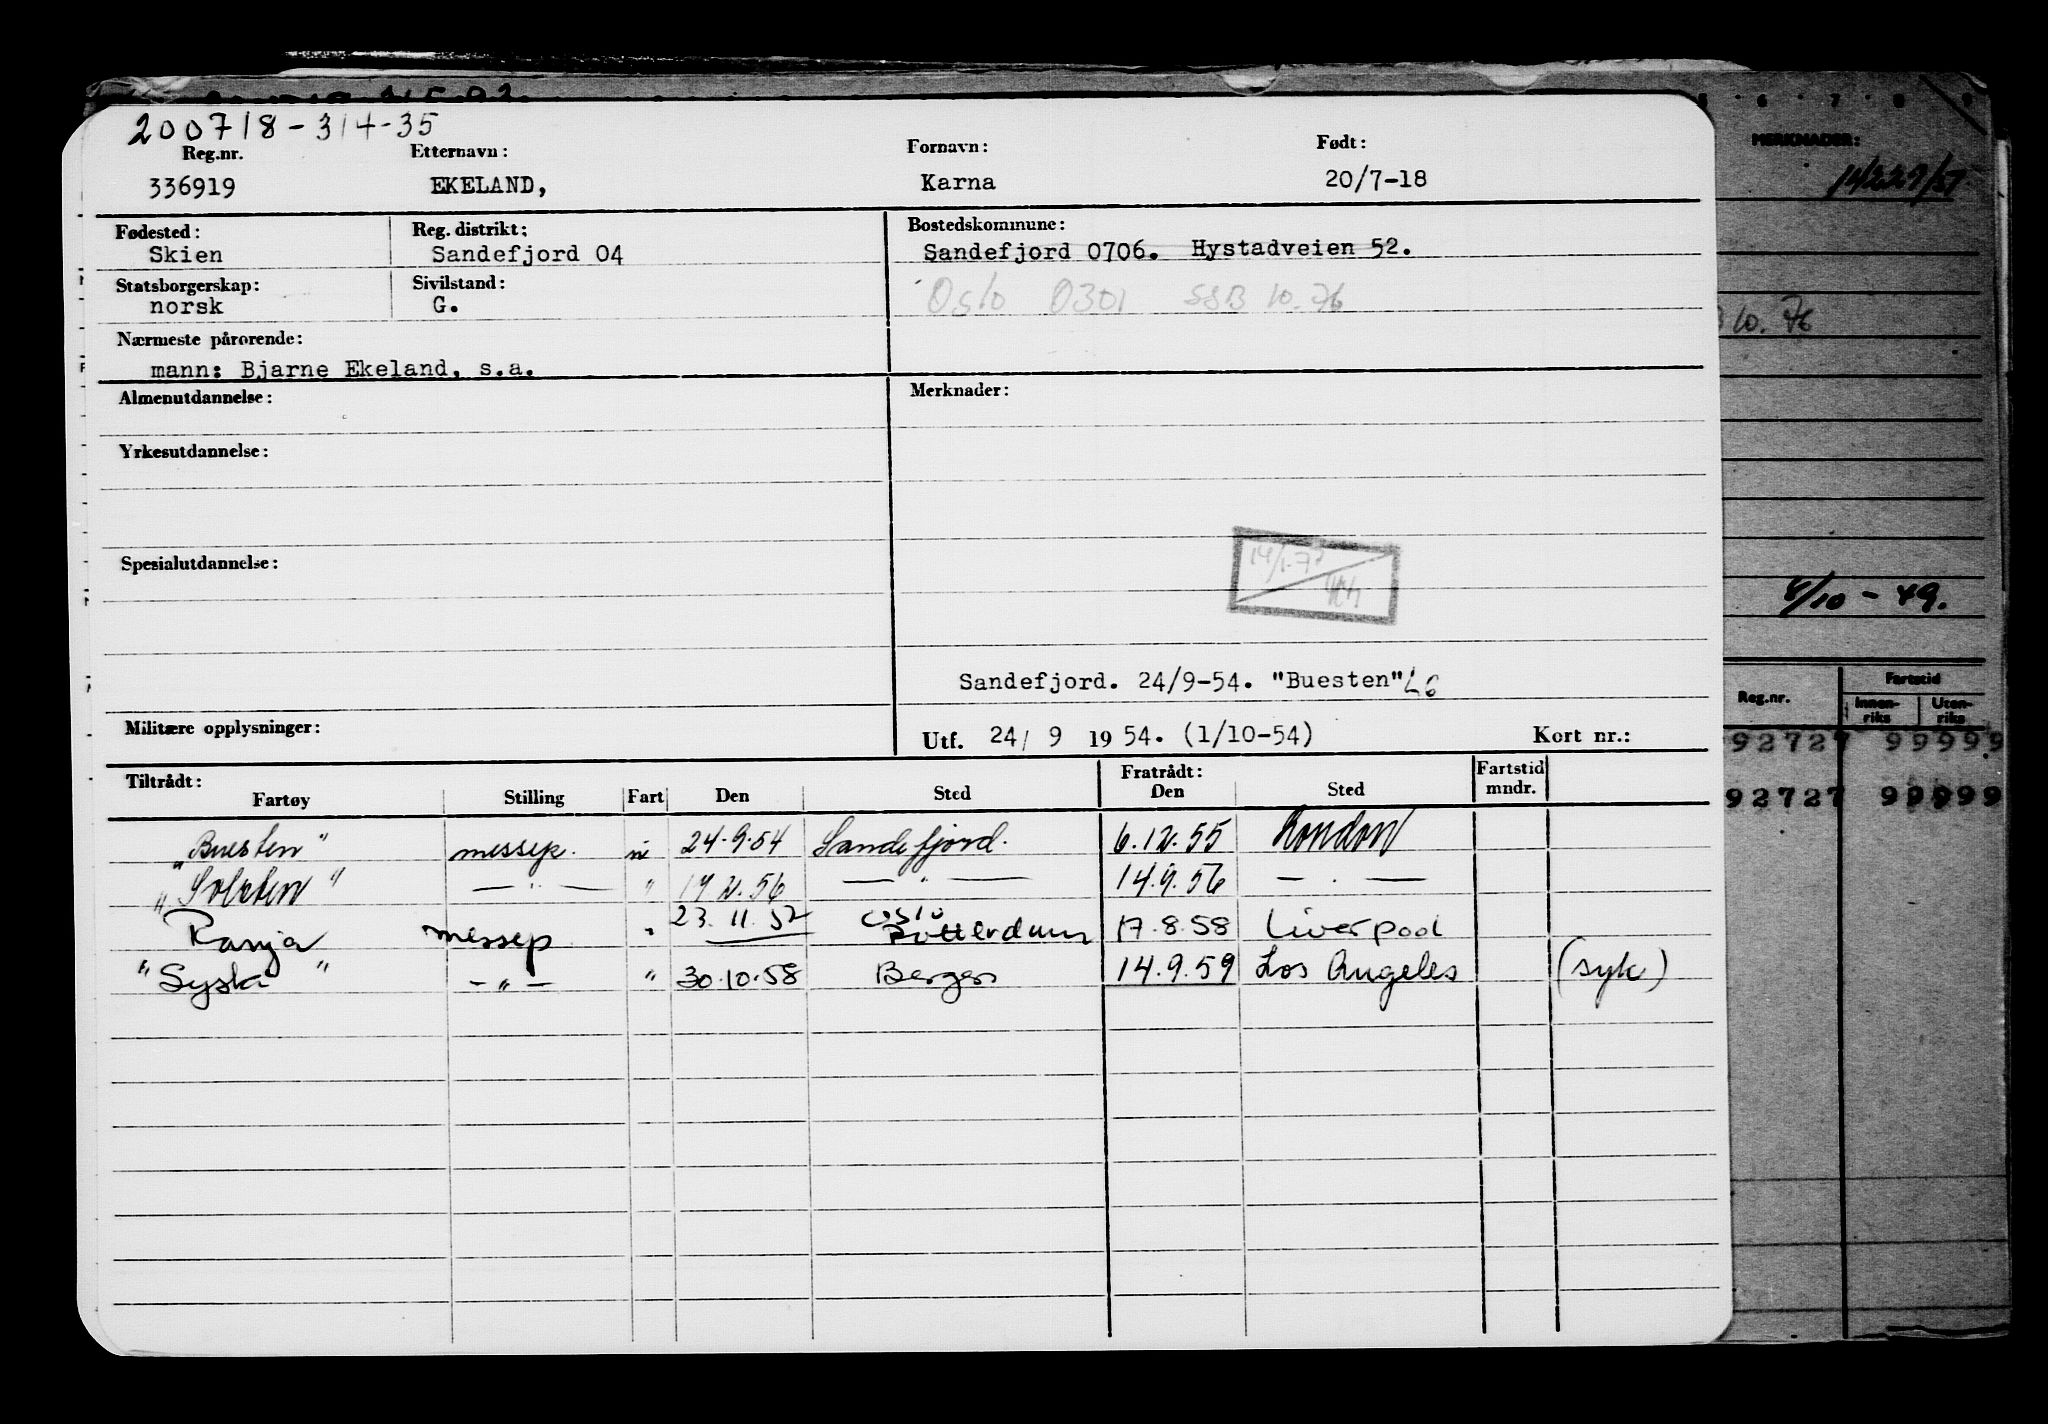 200718-314-35
Reg.nr. Etternavn: Fornavn: Født:
336919 EKELAND, Karna 20/7-18
Fødested: Reg. distrikt: Bostedskommune:
Skien Sandefjord 04 Sandefjord 0706. Hystadveien 52.
Statsborgerskap: Sivilstand:
norsk G. Oslo 0301 SSB 10.76
Nærmeste pårørende:
mann: Bjarne Ekeland, s.a.
Almenutdannelse: Merknader:
Yrkesutdannelse:
Spesialutdannelse:
Sandefjord. 24/9-54. "Buesten" L6
Militære opplysninger:
Utf. 24/ 9 1954. (1/10-54) Kort nr.:
Tiltrådt: Fratrådt: Fartstid
Fartøy Stilling Fart Den Sted Den Sted mndr.
"Buesten" messep. u 24.9.54 Sandefjord. 6.12.55 London
"Solsten" — " — " 56 — " — 14.9.56 — . —
Ranja messep " 23.11.57 Oslo Rotterdam 17.8.58 Liverpool
"Sysla" - " - " 30.10.58 Bergen 14.9.59 Los Angeles (syk)
6 7 8 9
MERKNADER:
10.76
8/10 - 49.
Reg.nr. Fartstid
Innen-riks Uten-riks
92727 99999
92727 99999